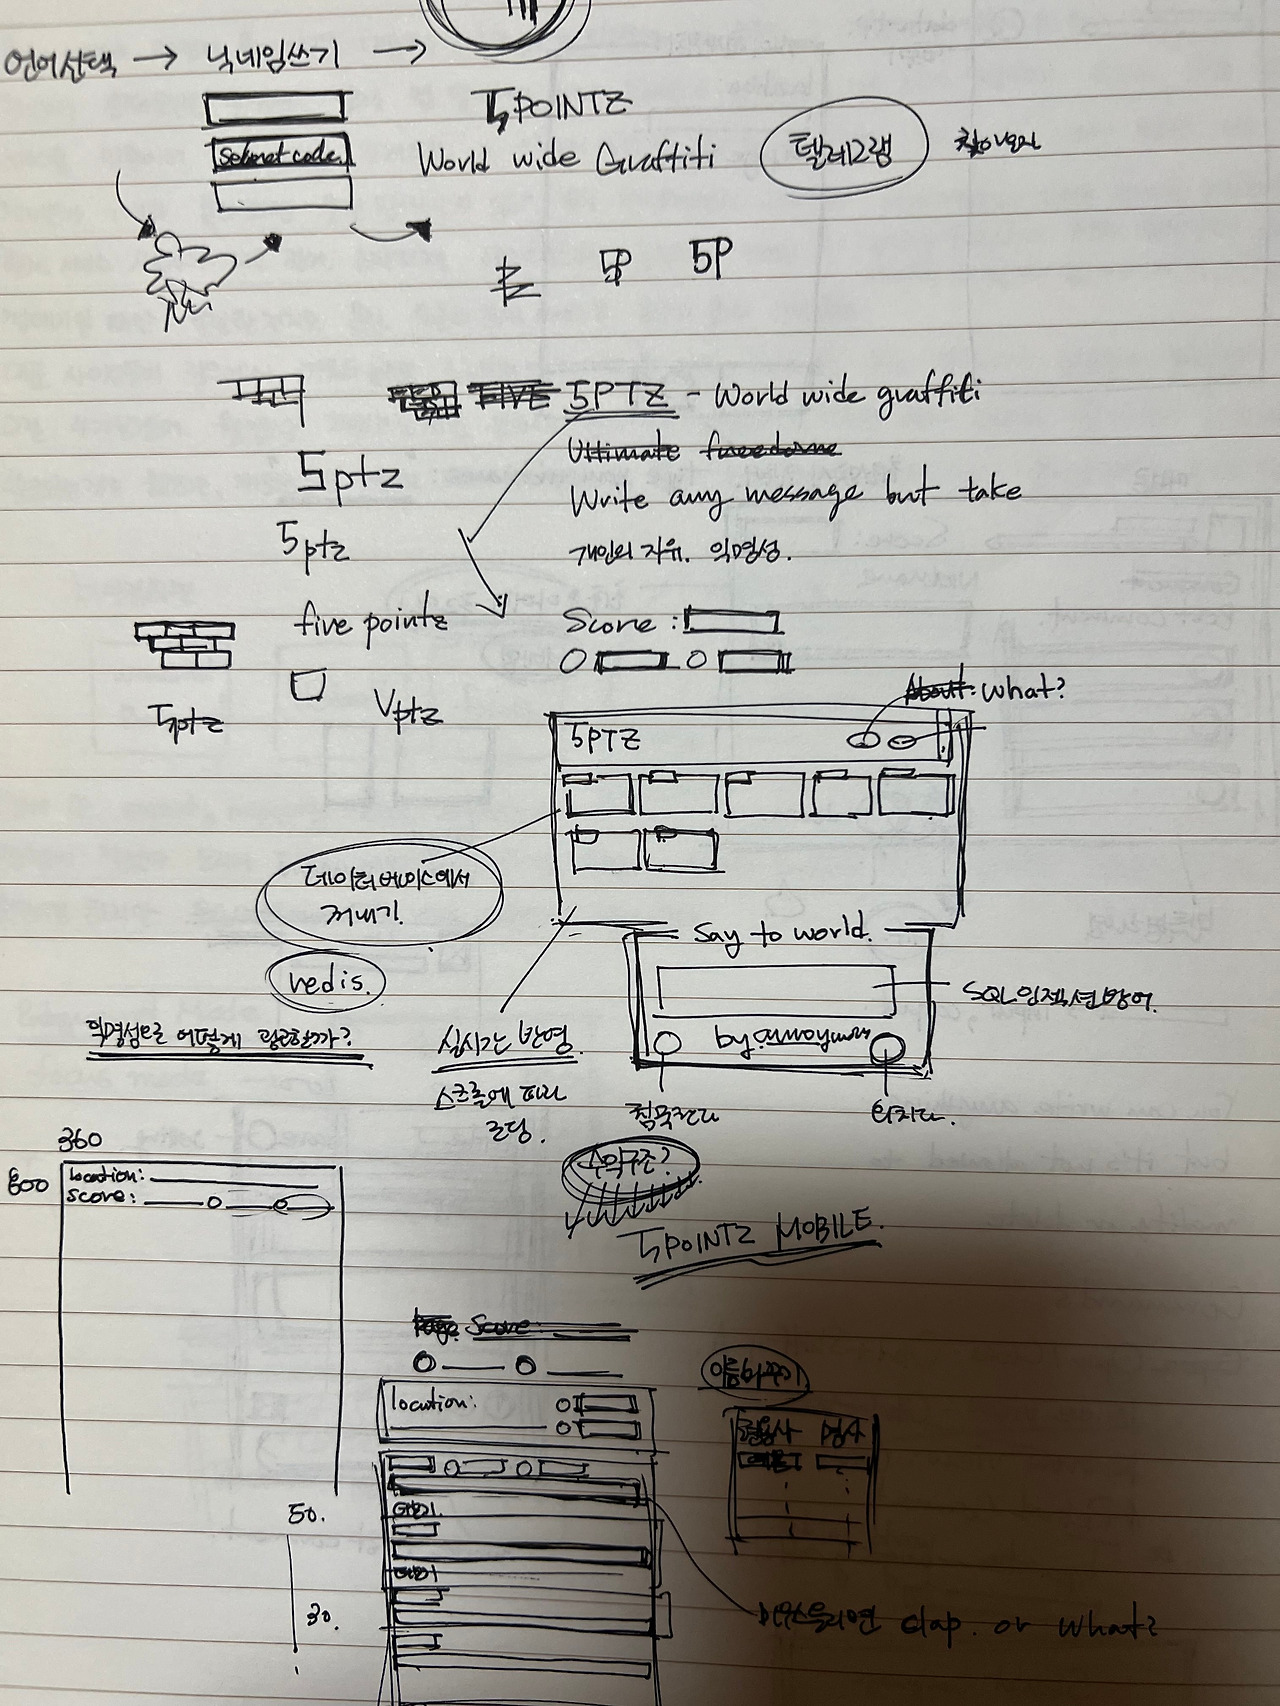 언어선택 → 닉네임쓰기 →
5POINTZ
World wide Graffiti
텔레그램
5P 5P
5PTZ - World wide graffiti
Ultimate freedome
Write any message but take
개인의 자유. 익명성.
5ptz
5ptz
five pointz
5ptz
Vptz
Score :
About. What?
5PTZ
데이터베이스에서
꺼내기.
redis.
Say to world.
SQL인젝션 방어.
익명성을 어떻게 관리할까?
실시간 반영.
스크롤에 따라
로딩.
침묵한다
외치다.
수익구조?
5POINTZ MOBILE.
360
800
location:
Score:
Page Score
이름바꾸기
location:
형용사 명사
50.
30.
마우스올리면 clap. or What?